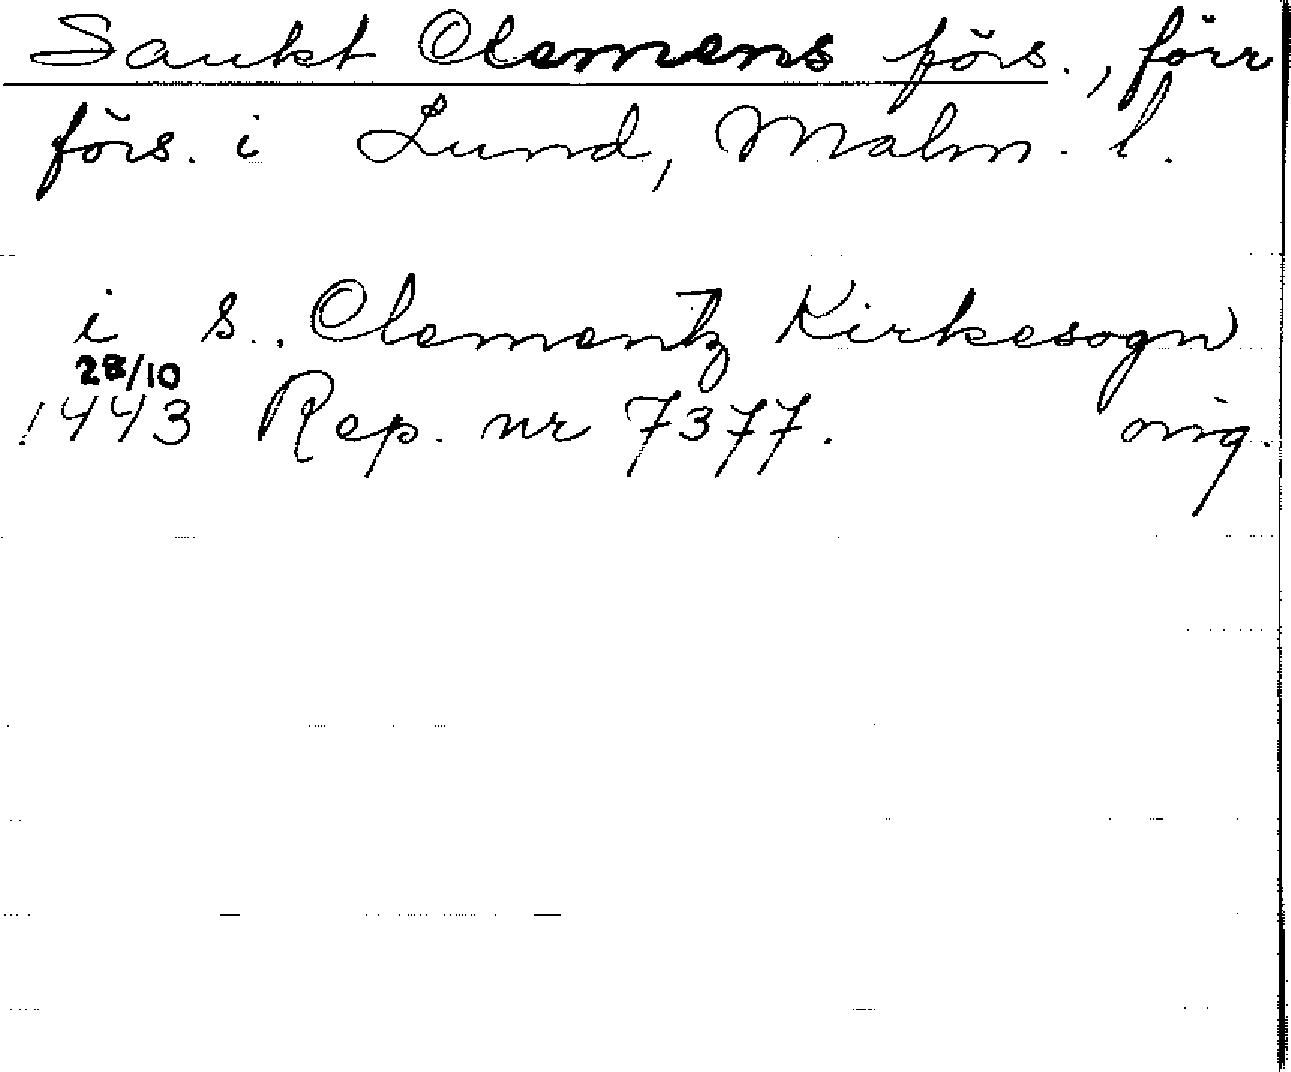 Sankt Clemens förs., förr
förs. i Lund, Malm. l.
i S. Clementz Kirkesogn
28/10
1443 Rep. nr 7377. orig.